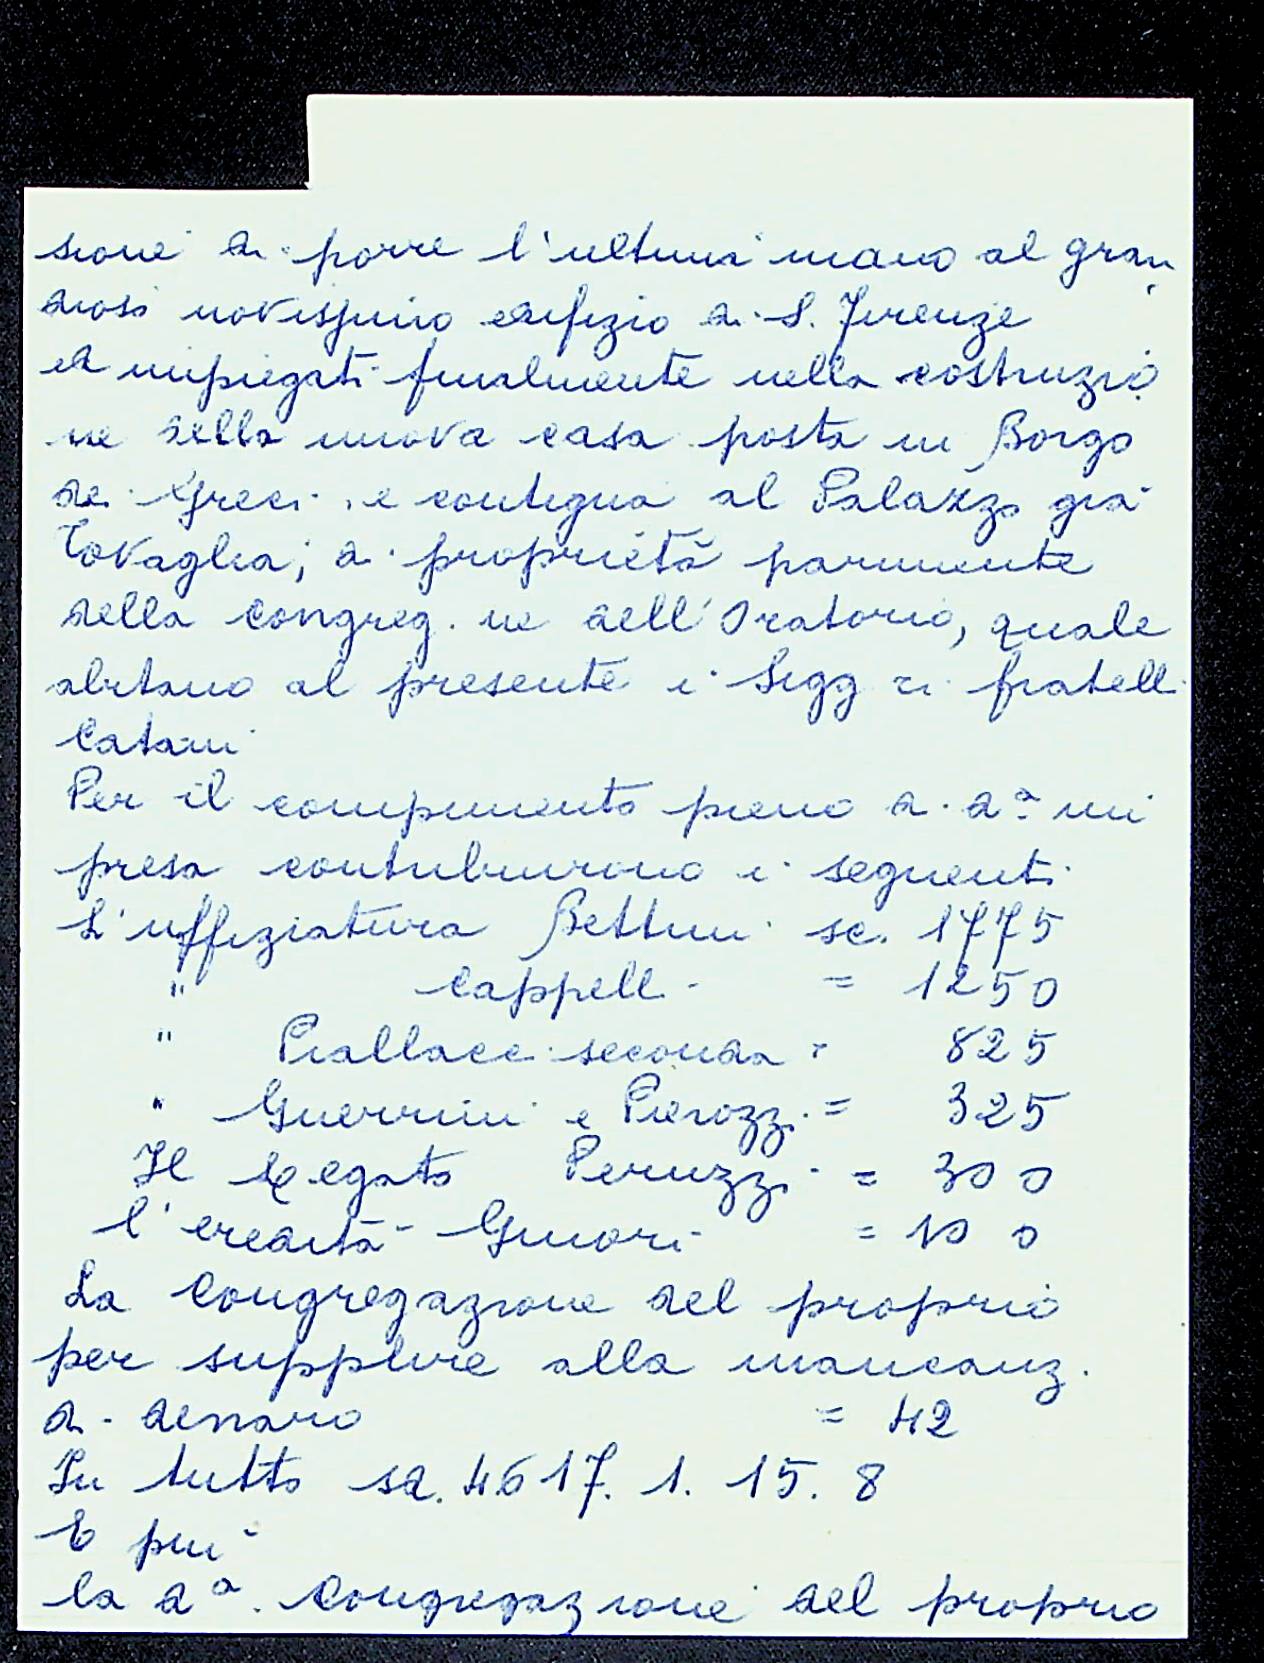 sione di porre l'ultima mano al gran
dioso novissimo edifizio di S. Firenze
et impiegati finalmente nella costruzio
ne della nuova casa posta in Borgo
dei Greci, e contigua al Palazzo già
Tovaglia; di proprietà parimente
della Congreg.ne dell'Oratorio, quale
abitano al presente i Sigg.ri fratelli
Catani
Per il compimento pieno di d.ª im
presa contribuirono i seguenti
L'uffiziatura Bettini sc. 1775
" Cappelli = 1250
" Piallacci seconda = 825
" Guerrini e Pierozzi = 325
Il Legato Peruzzi = 300
l'eredità Ginori = 100
La Congregazione del proprio
per supplire alla mancanz.
di denaro = 42
In tutto sc. 4617. 1. 15. 8
E più
la d.ª Congregazione del proprio